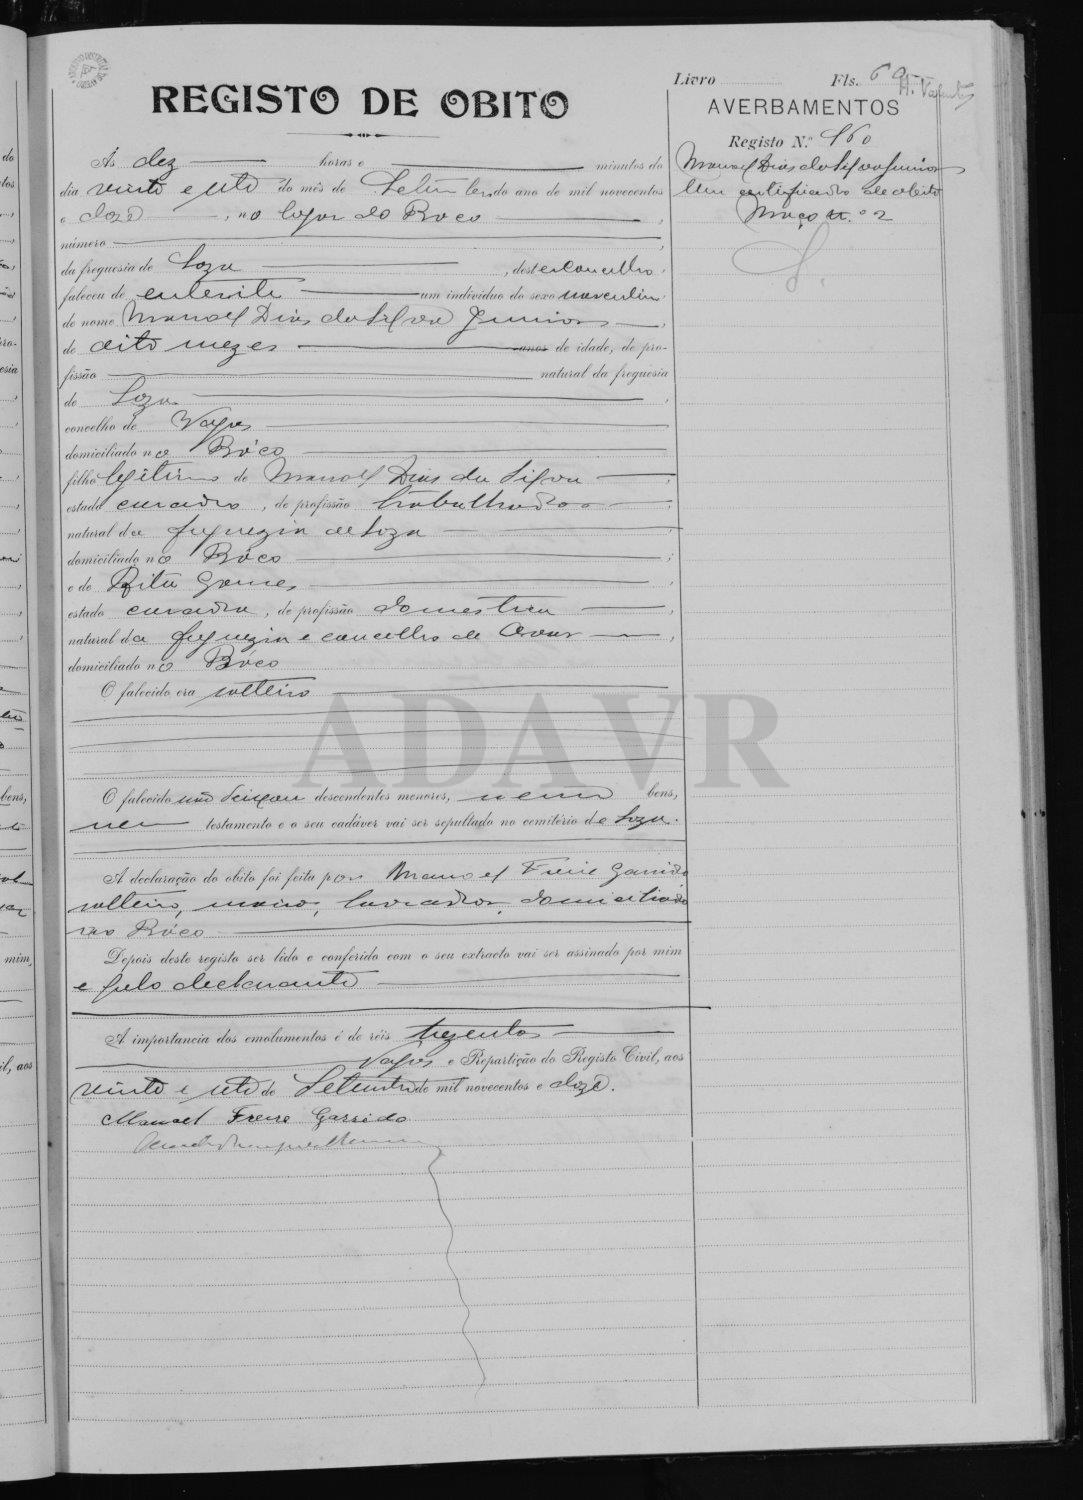 Livro Fls. 69
REGISTO DE OBITO
AVERBAMENTOS
Registo N.º 160
Manoel Dias da Silva Junior
Um certificado de obito
Maço n.º 2
Ás dez horas e minutos do
dia vinte e sete do mês de Setembro do ano de mil novecentos
e doze, no logar do Boco,
número,
da freguesia de Soza, deste concelho,
faleceu de enterite um indivíduo do sexo masculino
de nome Manoel Dias da Silva Junior,
de oito mezes anos de idade, de pro-
fissão natural da freguesia
de Soza,
concelho de Vagos
domiciliado no Bóco
filho legitimo de Manoel Dias da Silva,
estado casado, de profissão trabalhador,
natural da freguezia de Soza,
domiciliado no Bóco;
e de Rita Gomes,
estado casada, de profissão domestica,
natural da freguezia e concelho de Ovar,
domiciliado no Bóco
O falecido era solteiro
ADAVR
O falecido não deixou descendentes menores, nem bens,
nem testamento e o seu cadáver vai ser sepultado no cemitério de Soza.
A declaração do obito foi feita por Manoel Freire Garrido
solteiro, maior, lavrador, domiciliado
no Bóco
Depois deste registo ser lido e conferido com o seu extracto vai ser assinado por mim
e pelo declarante
A importancia dos emolumentos é de réis trezentos
Vagos e Repartição do Registo Civil, aos
vinte e sete de Setembro de mil novecentos e doze.
Manoel Freire Garrido